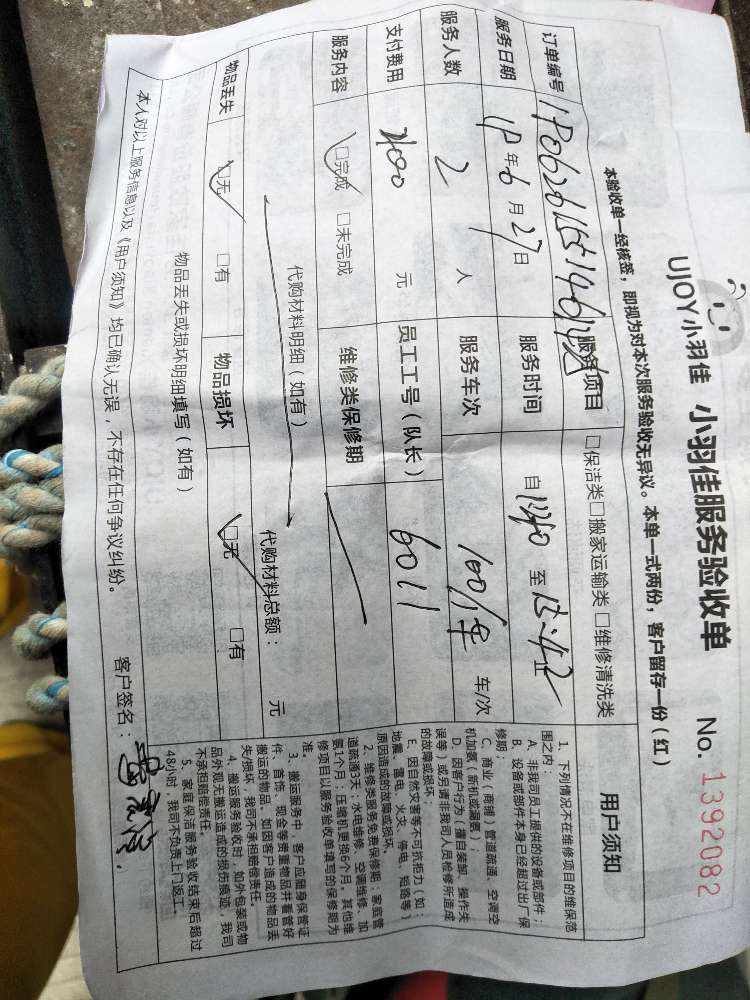 UJOY小羽佳 小羽佳服务验收单 No. 1392082
本验收单一经核签，即视为对本次服务验收无异议。本单一式两份，客户留存一份（红）
订单编号
服务项目 □保洁类□搬家运输类□维修清洗类
服务日期 19年6月27日
服务时间 自 至
服务人数 2 人
服务车次 车/次
支付费用 元
员工工号（队长） 6011
服务内容 □完成 □未完成
维修类保修期
代购材料明细（如有）
代购材料总额： 元
物品丢失 □无 □有
物品损坏 □无 □有
物品丢失或损坏明细填写（如有）
本人对以上服务信息以及《用户须知》均已确认无误，不存在任何争议纠纷。
客户签名：
用户须知
1、下列情况不在维修项目的维保范
围之内：
A、非我司员工提供的设备或部件；
B、设备或部件本身已经超过出厂保
修期；
C、商业（商铺）管道疏通、空调空
机加氨（新机或漏氨）；
D、因客户行为（擅自装卸、操作失
误等）或另请非我司人员检修所造成
的故障或损坏；
E、因自然灾害等不可抗拒力（如：
地震、雷电、火灾、停电、短路等）
原因造成的故障或损坏。
2、维修类服务免费保修期：家庭管
道疏通3天；水电维修、空调维修、加
氨1个月；压缩机更换6个月。其他维
修项目以服务验收单填写的保修期为
准。
3、搬运服务中，客户应随身保管证
件、首饰、现金等贵重物品并看管好
搬运的物品，如因客户造成的物品丢
失/损坏，我司不承担赔偿责任。
4、搬运服务验收时，如外包装或物
品外观无搬运造成的损伤痕迹，我司
不承担赔偿责任。
5、家庭保洁服务验收结束后超过
48小时，我司不负责上门返工。